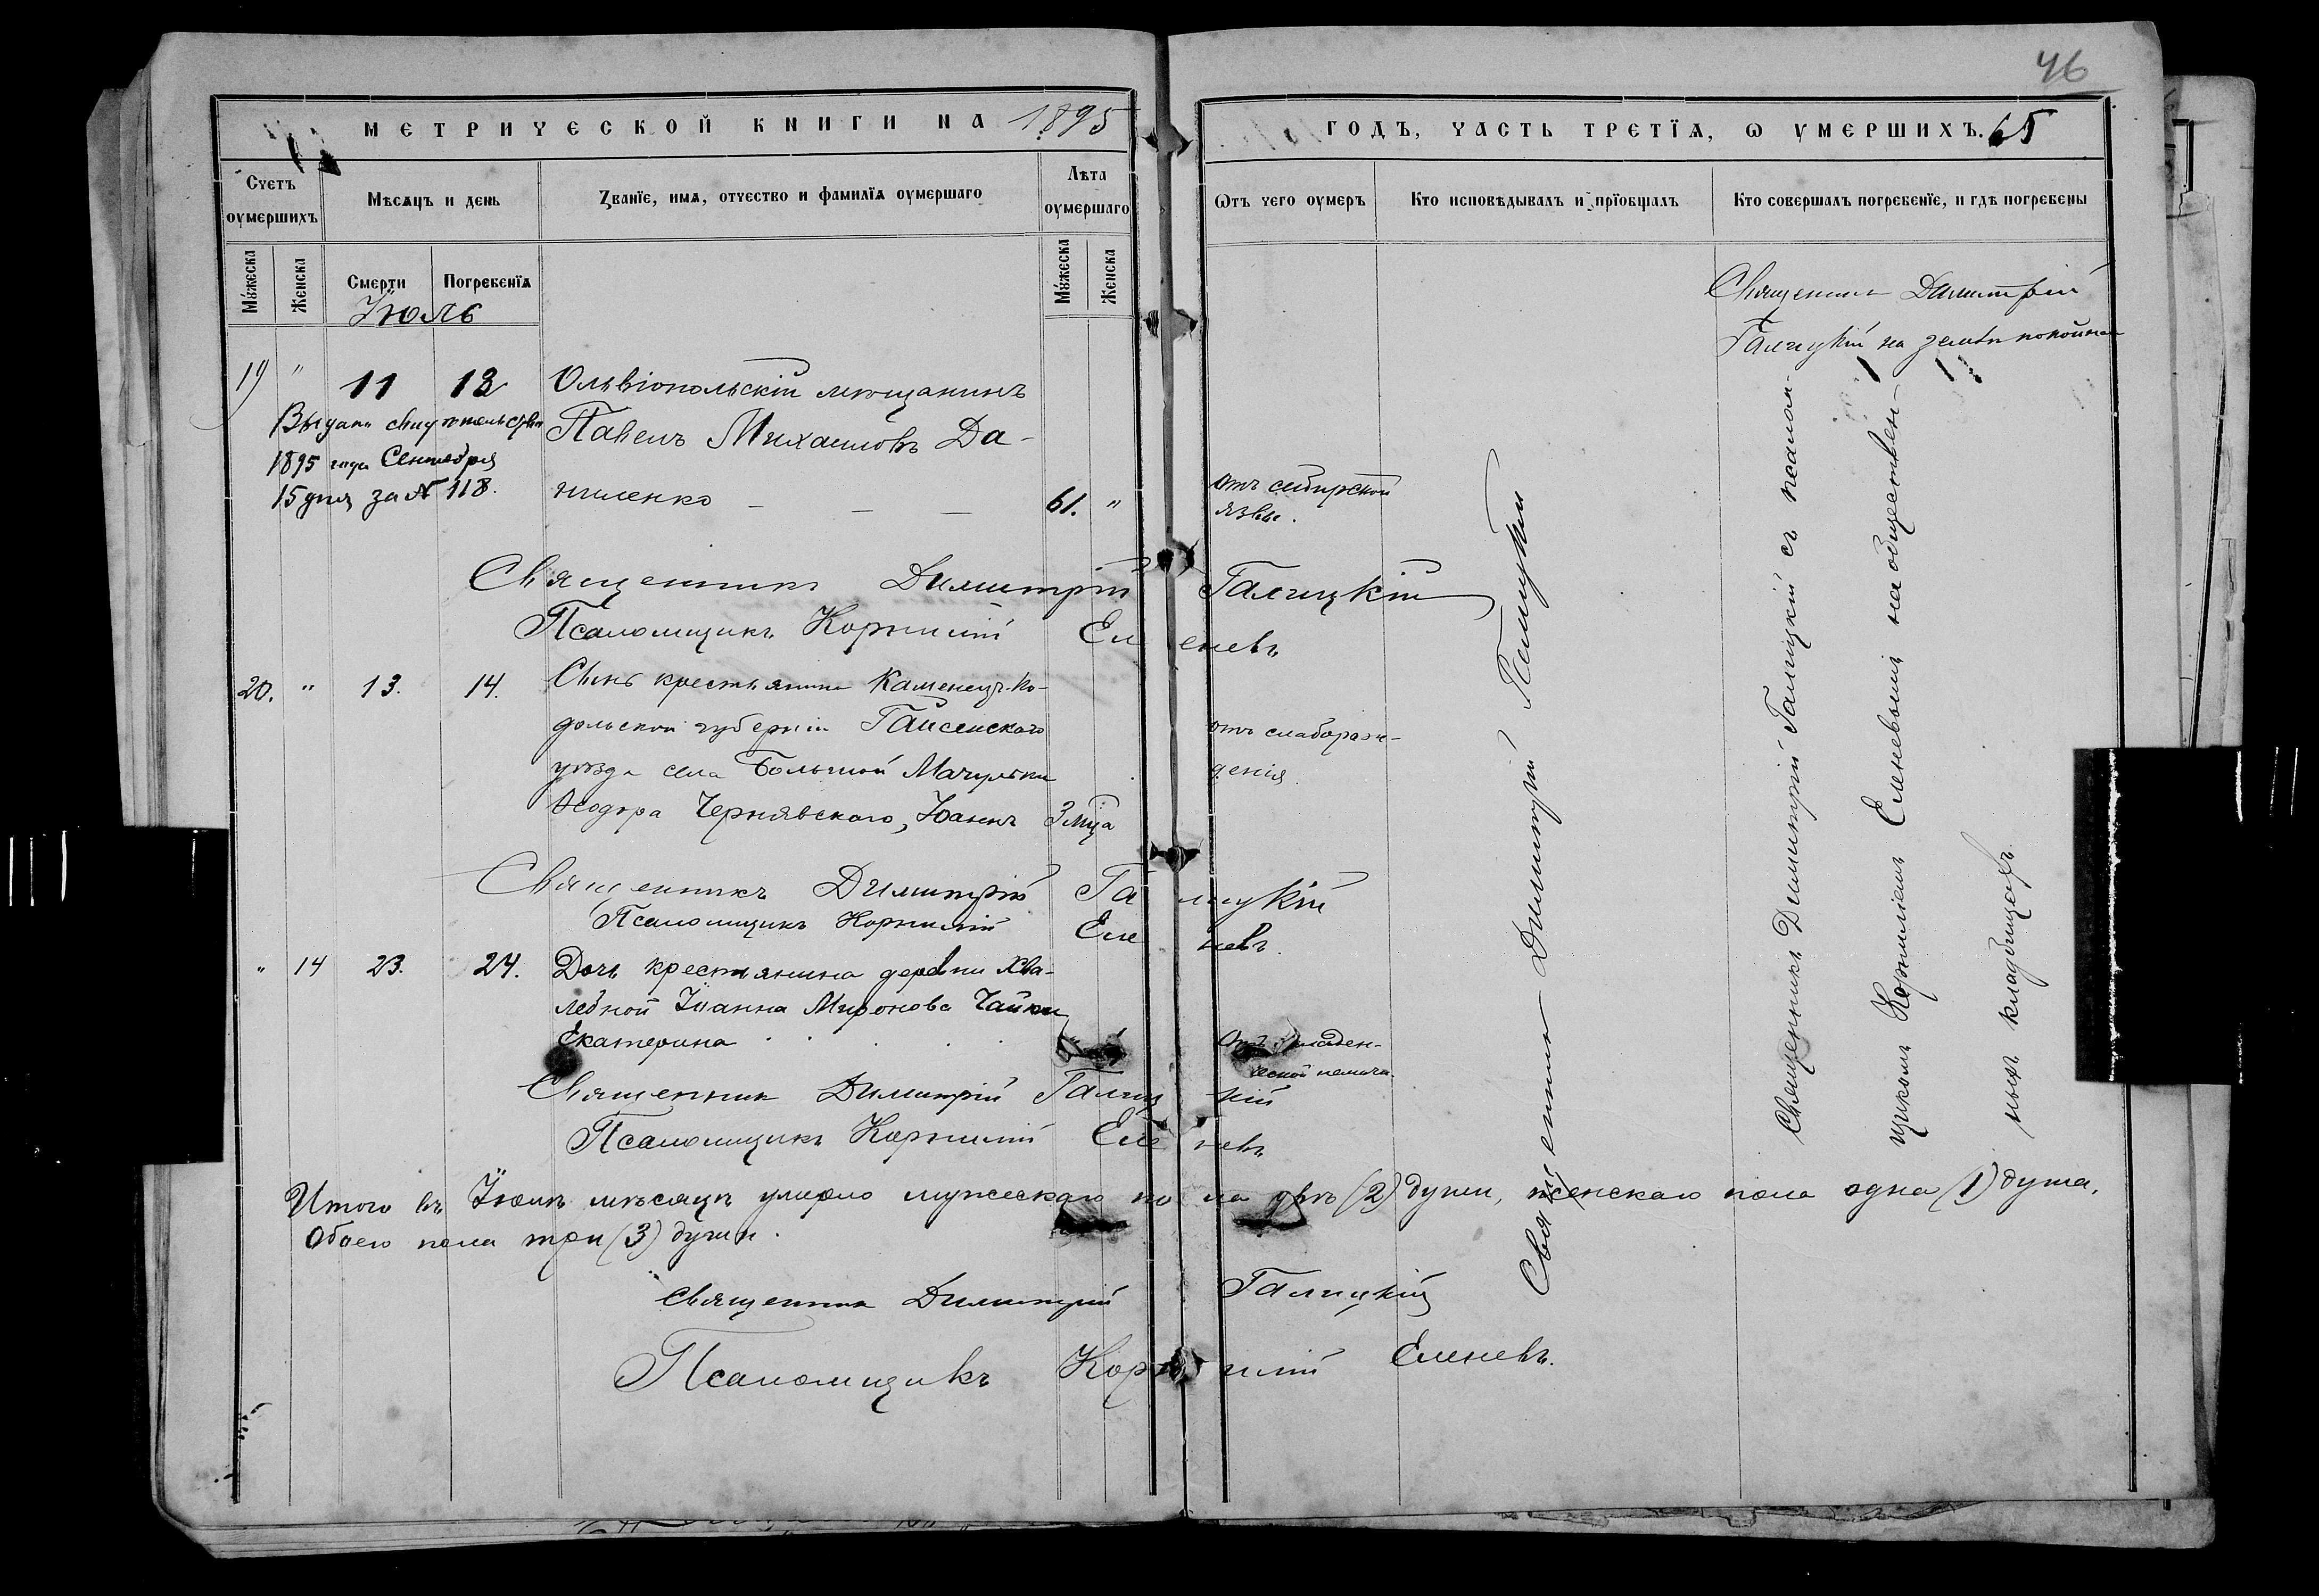 46
МЕТРИЧЕСКОЙ КНИГИ НА 1895
ГОДЪ, ЧАСТЬ ТРЕТЇѦ, Ѡ УМЕРШИХЪ. 65
Счетъ оумершихъ
Мѣсѧцъ и день
Званїе, имѧ, отчество и фамилїѧ оумершаго
Лѣта оумершаго
Ѡтъ чего оумеръ
Кто исповѣдывалъ и прїобщалъ
Кто совершалъ погребенїе, и гдѣ погребены
Мꙋжеска
Женска
Смерти
Погребенїѧ
Мꙋжеска
Женска
Іюль
Священникъ Димитрій
Галицкій на землѣ
19 " 11 12 Ольвіопольскій мѣщанинъ
Выдано свидѣтельство
Павелъ Михаиловъ Да-
1895 года Сентября
15 дня за № 118.
ниленко — — — 61. " отъ сибирской
язвы.
Священникъ Димитрій Галицкій
Псаломщикъ Корнилій Еленевъ
20. " 13. 14. Сынъ крестьянина Каменецъ-По-
дольской губерніи Гайсенскаго
уѣзда села Большой Мачулки
Ѳеодора Чернявскаго, Іоаннъ 3 мца
отъ слаборож-
денія.
Священникъ Димитрій Галицкій
Псаломщикъ Корнилій Еленевъ.
" 14 23. 24. Дочь крестьянина деревни Хва-
ледной Іоанна Миронова Чайки
Екатерина . . . . .
Отъ младен-
ческой
Священникъ Димитрій Галицкій
Псаломщикъ Корнилій Еленевъ
Священникъ Димитрій Галицкій
Священникъ Димитрій Галицкій съ псалом-
щикомъ Корниліемъ Еленевымъ на обществен-
ныхъ кладбищахъ.
Итого въ Іюлѣ мѣсяцѣ умерло мужескаго пола двѣ (2) души, женскаго пола одна (1) душа,
Обоего пола три (3) души.
Священникъ Димитрій Галицкій
Псаломщикъ Корнилій Еленевъ.